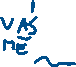 VAS
ME